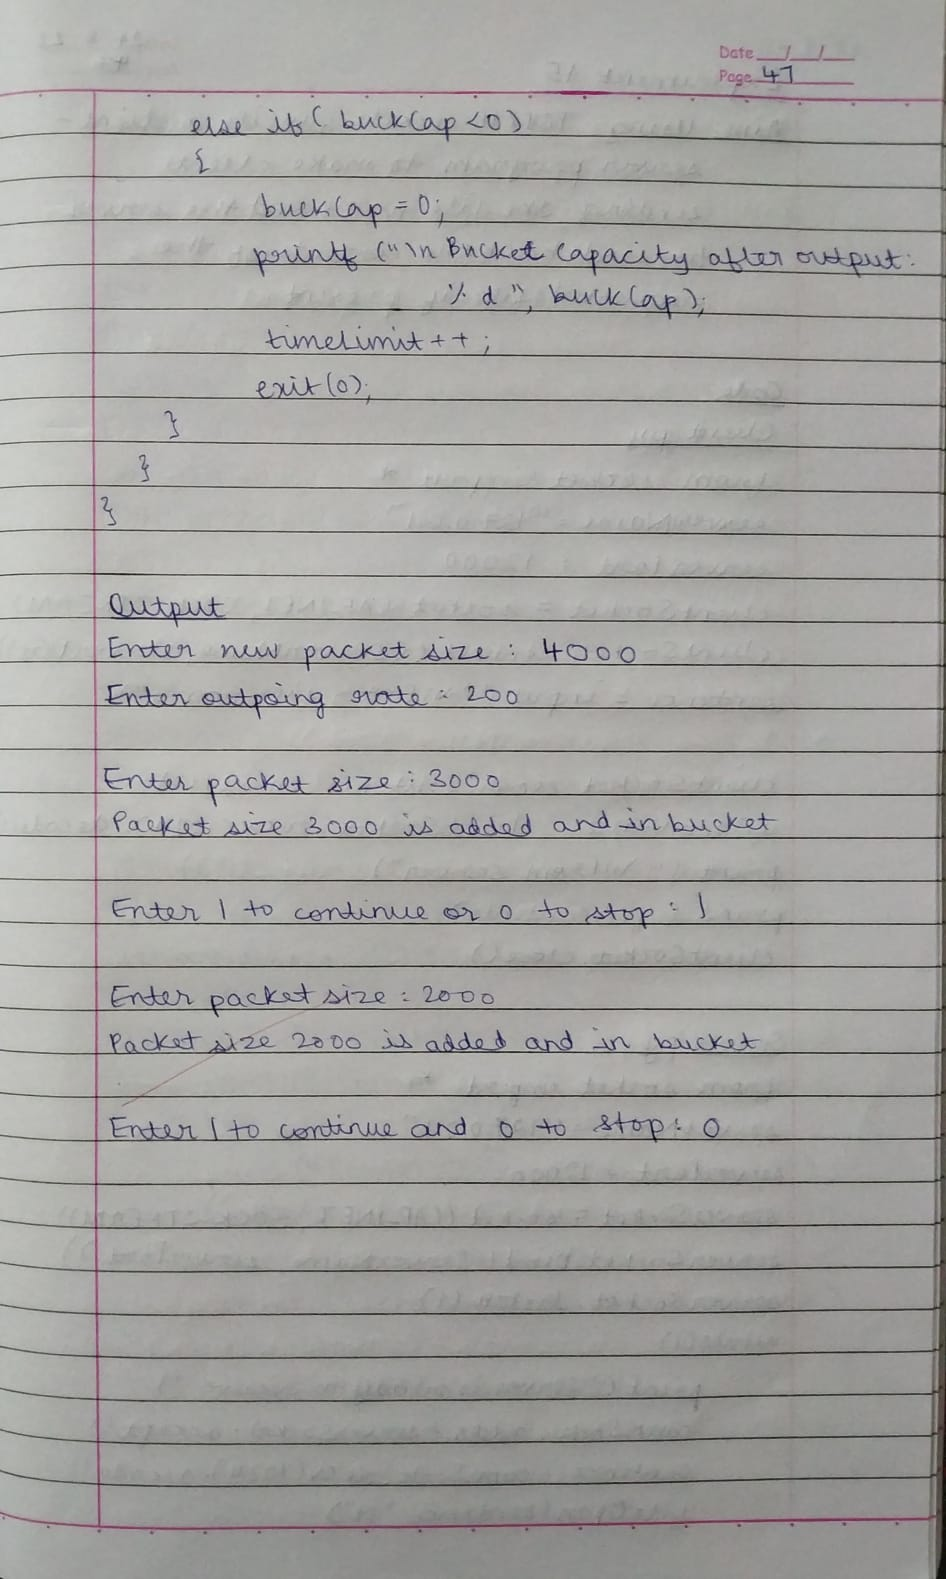 Date / /
Page 47
else if ( buckCap <0)
{
buckCap = 0;
printf ("\n Bucket Capacity after output:
% d", buckCap);
timeLimit++;
exit(0);
}
}
}
Output
Enter new packet size : 4000
Enter outpoing rate : 200
Enter packet size : 3000
Packet size 3000 is added and in bucket
Enter 1 to continue or 0 to stop : 1
Enter packet size : 2000
Packet size 2000 is added and in bucket
Enter 1 to continue and 0 to stop : 0